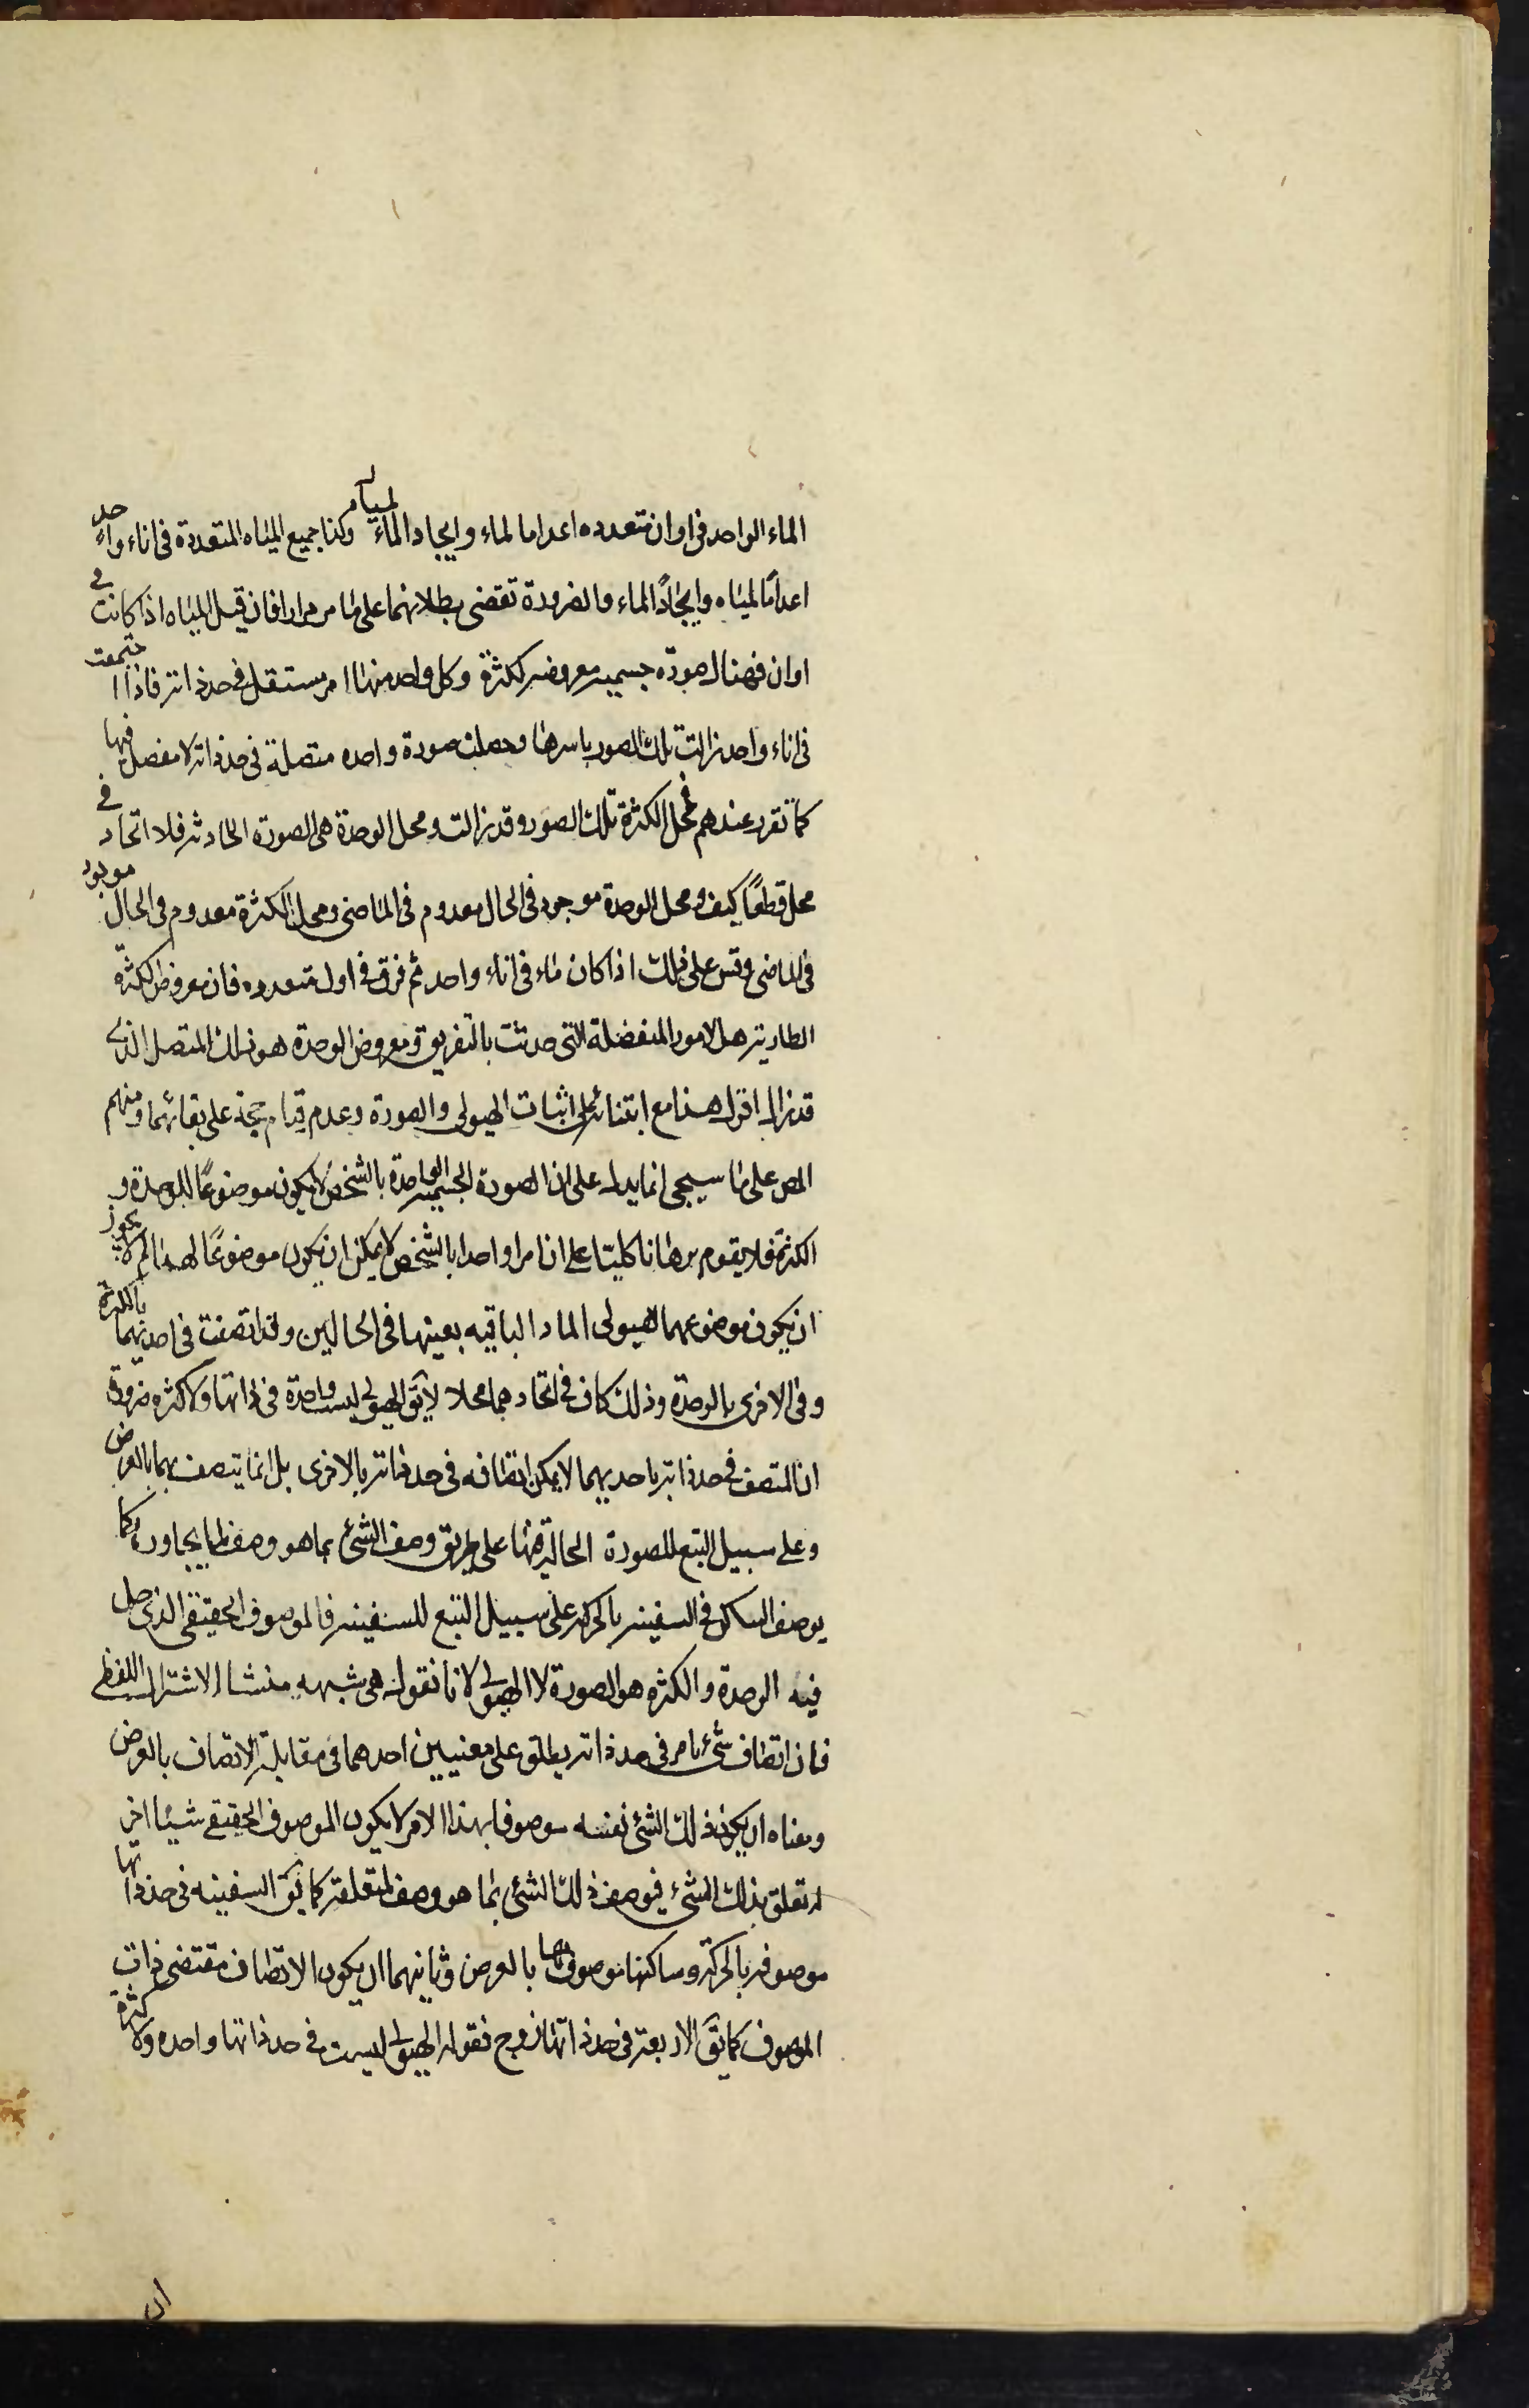 الماء الواحد فى اوان متعدده اعداما لماء وايجادا لمياه وكذا جميع المياه المتعددة فى اناء واحد
اعدامًا لمياه وايجادًا لماء والضرورة تقضى ببطلانهما على ما مر مرارا فان قيل المياه اذا كانت فى
اوان فهناك صورة جسمية معروضه لكثرة وكل واحد منها امر مستقل فى حد ذاته فاذا اجتمعت
فى اناء واحد زالت تلك الصور باسرها وحصلت صورة واحده متصلة فى حد ذاته لا مفصل فيها
كما تقرر عندهم فمحل الكثرة تلك الصور وقد زالت ومحل الوحدة هى الصورة الحادثه فلا اتحاد فى
محل قطعًا كيف ومحل الوحدة موجود فى الحال معدوم فى الماضى ومحل الكثرة معدوم فى الحال موجود
فى الماضى وقس على ذلك اذا كان ماء فى اناء واحد ثم فرق فى اوان متعدده فان معروض الكثرة
الطارية هى الامور المنفصلة التى حدثت بالتفريق ومعروض الوحدة هو ذلك المتصل الذى
قد زال اقول هذا مع ابتنائه على اثبات الهيولى والصورة وعدم قيام حجة على بقائهما ومنهم
المص على ما سيجى انما يدل على ان الصورة الجسمية الواحدة بالشخص لا يكون موضوعًا للوحدة و
الكثرة فلا يقوم برهانا كليا على ان امرا واحدا بالشخص لا يمكن ان يكون موضوعًا لهما لم لا يجوز
ان يكون موضوعهما هيولى الماء الباقيه بعينها فى الحالين وقد اتصفت فى احديهما بالكثرة
وفى الاخرى بالوحدة وذلك كاف فى اتحادهما محلا لا يق الهيولى ليست واحدة فى ذاتها ولا كثره ضرورة
ان المتصف فى حد ذاته باحديهما لا يمكن اتصافه فى حد ذاته بالاخرى بل انما يتصف بهما بالعرض
وعلى سبيل التبع للصورة الحالة فيها على طريق وصف الشئ بما هو وصف لما يجاوره كما
يوصف الساكن فى السفينه بالحركه على سبيل التبع للسفينه فالموصوف الحقيقى الذى حل
فيه الوحدة والكثره هو الصورة لا الهيولى لانا نقول هى شبهه منشاء الاشتراك اللفظى
فان اتصاف شئ بامر فى حد ذاته يطلق على معنيين احدهما فى مقابلة الاتصاف بالعرض
ومعناه ان يكون ذلك الشئ نفسه موصوفا بهذا الامر لا يكون الموصوف الحقيقى شيئا اخر
له تعلق بذلك الشئ فيوصف ذلك الشئ بما هو وصف لمتعلقه كما يق السفينه فى حد ذاتها
موصوفه بالحركة وساكنها موصوف بها بالعرض وثانيهما ان يكون الاتصاف مقتضى ذات
الموصوف كما يق الاربعة فى حد ذاتها زوج فقوله الهيولى ليست فى حد ذاتها واحده ولا كثرة
ان